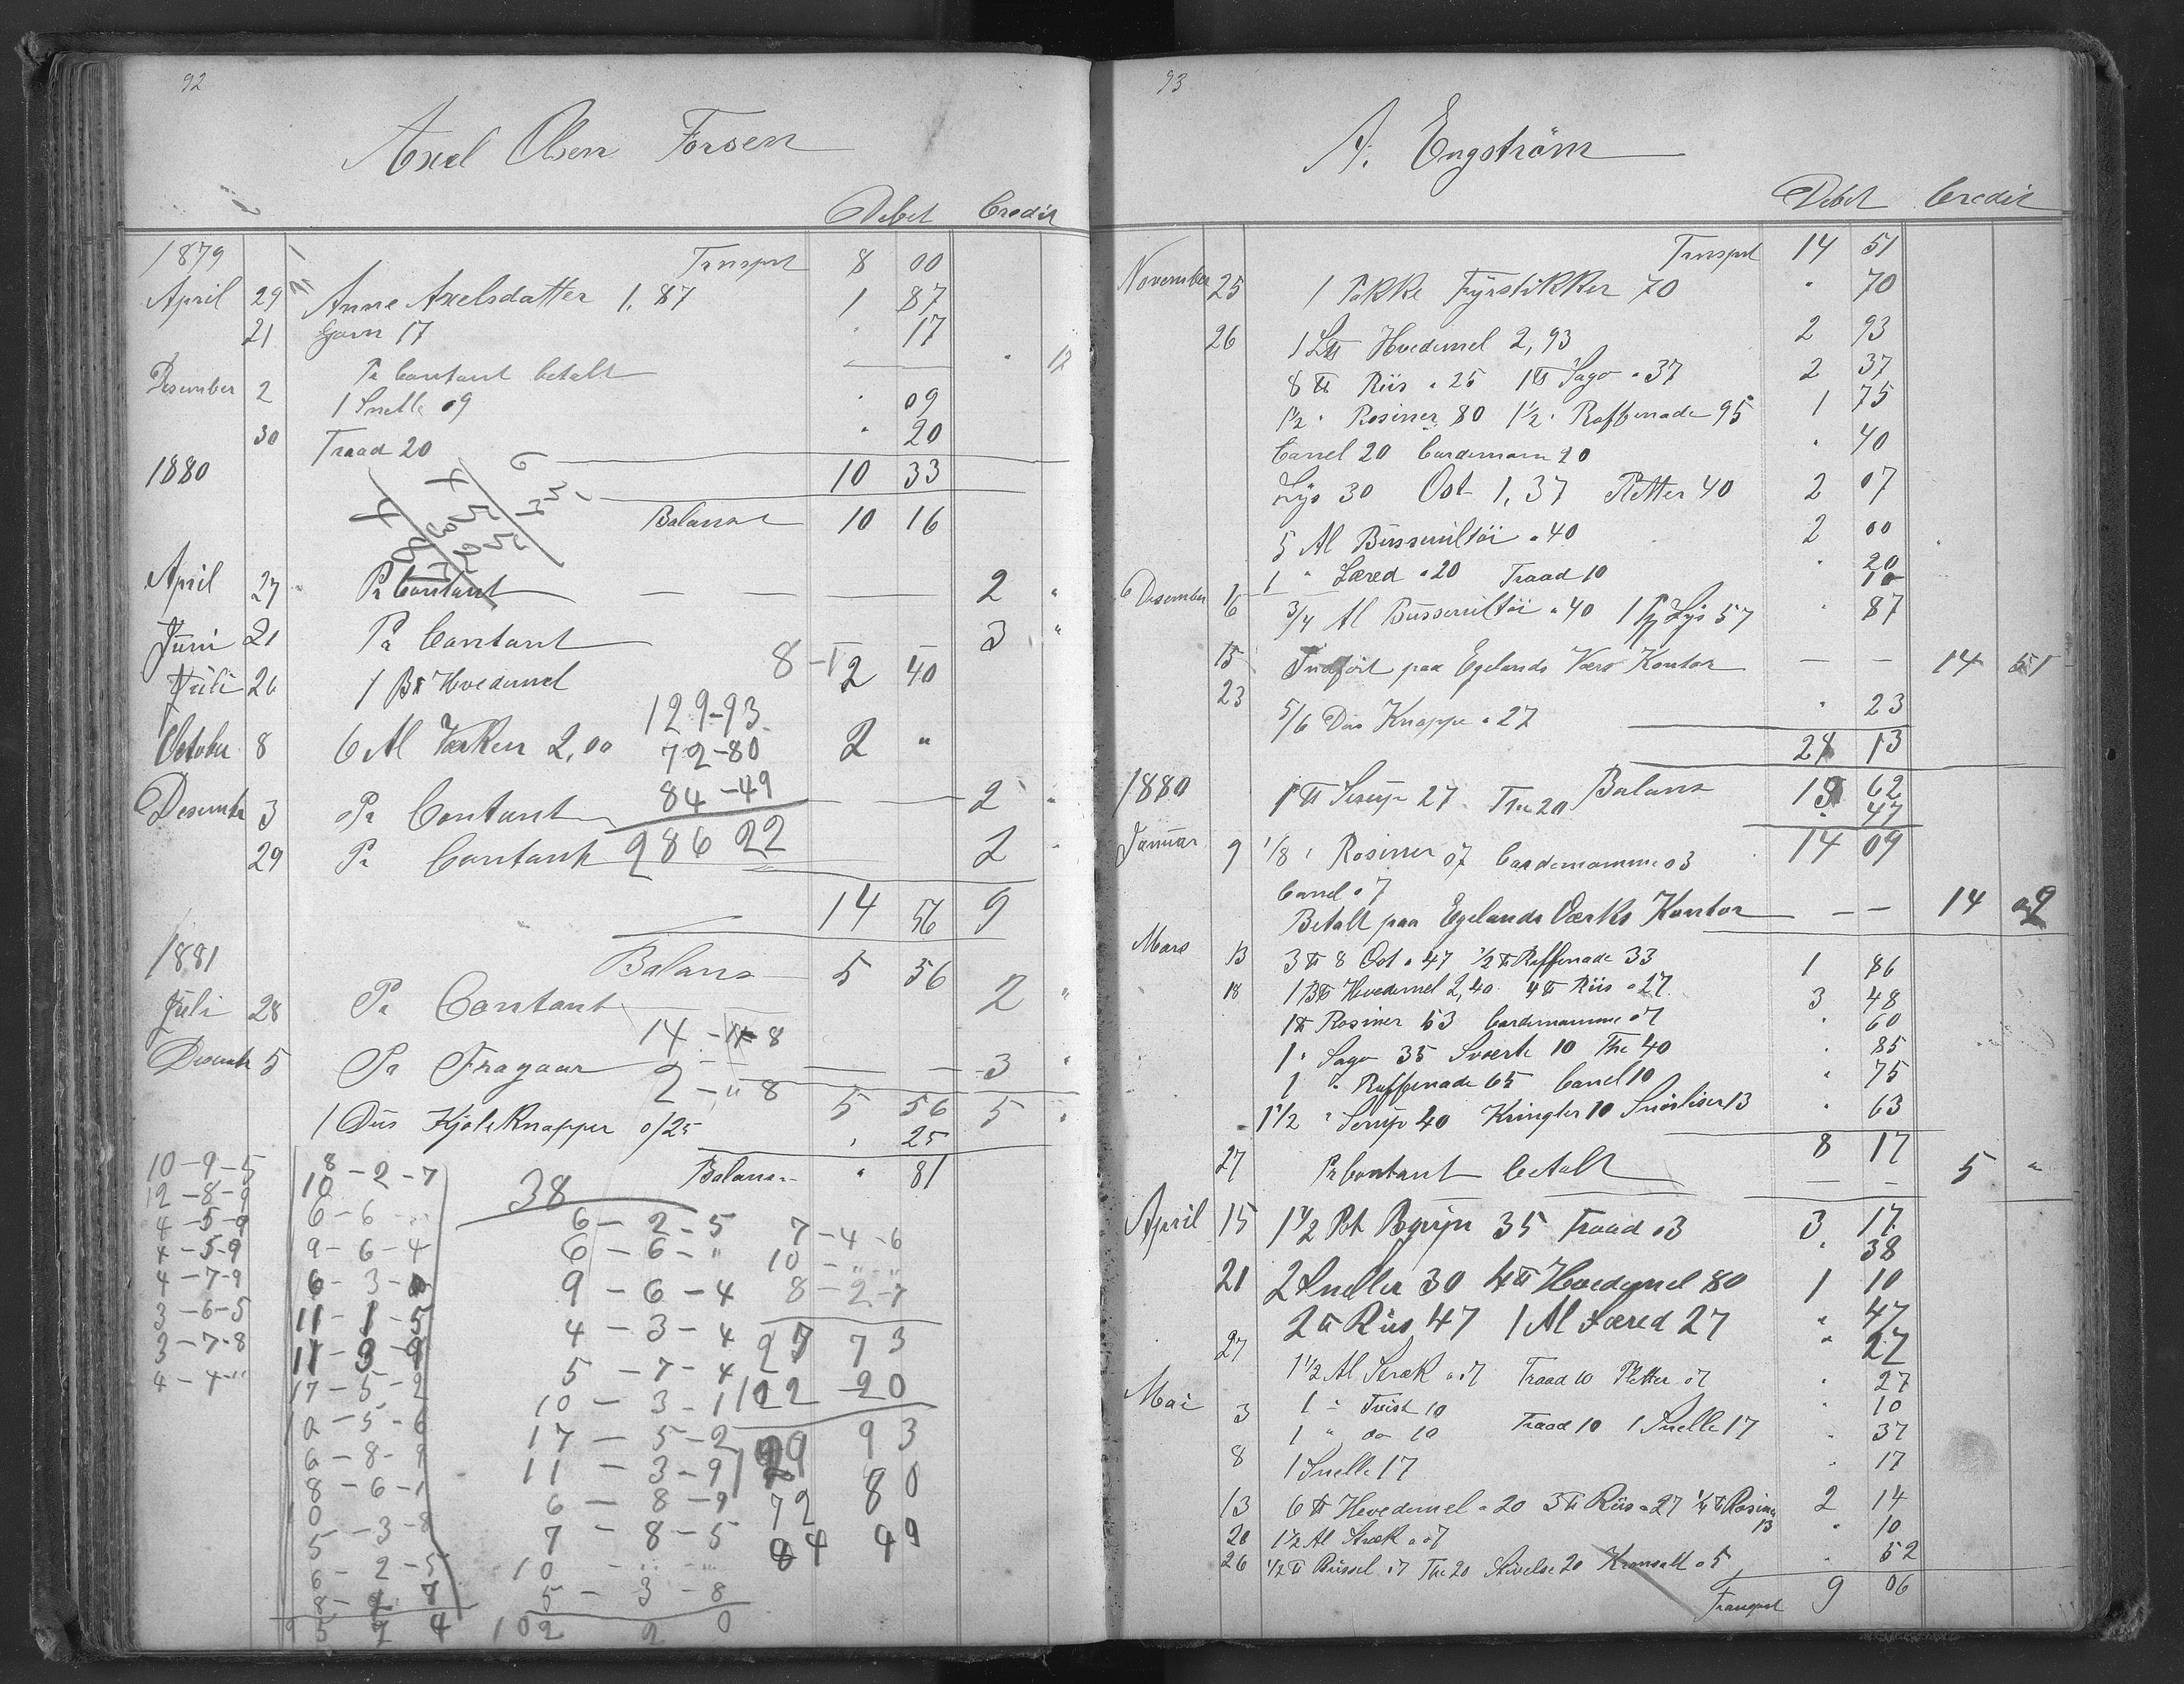 92
Axel Olsen Forsen
Debet Credit
1879 Trnsprt 8 00
April 29 Anne Axelsdatter 1,87 1 87
21 Garn 17 " 17
Pr Contant betalt — " 17
Desember 2 1 Snelle 09 " 09
30 Traad 20 " 20
1880 10 33
Balanse 10 16
April 27 Pr Contant — — — — 2 "
Juni 21 Pr Contant — — 3 "
8 - 1
Juli 26 1 B℔ Hvedemel 2 40
129-93
October 8 6 Al Værken 2,00 2 "
72-80
84-49
Desembr 3 Pr Contant — — 2 "
286 22
29 Pr Contant 2 "
14 56 9
1881 Balans 5 56
Juli 28 Pr Contant 2 "
14 - 11 8
Desembr 5 Pr Fragaar — — 3 "
2 - " 8
5 56 5 "
1 Dus Kjoleknapper o/25 " 25
Balans " 81
10-9-5
12-8-9
4-5-9
4-5-9
4-7-9
3-6-5
3-7-8
4-4-"
8-2-7
10
6-6-"
9-6-4
6-3-
11-1-5
11-3-9
17-5-2
10-5-6
6-8-9
8-6-1
10
5-3-8
6-2-5
8-2-7
38
6-2-5
6-6-"
9-6-4
4-3-4
5-7-4
10-3-1
17-5-2
11-3-9
6-8-9
7-8-5
10 - " - "
5-3-8
102 2 0
7-4-6
10-"-"
8-2-7
27 7 3
102 20
129 93
72 80
84 49
93
A. Engström
Debet Credit
Trnsprt 14 51
November 25 1 Pakke Fyrstikker 70 " 70
26 1 L℔ Hvedemel 2,93 2 93
8 ℔ Riis a 25 1 ℔ Sago a 37 2 37
1½ " Rosiner 80 1½ " Raffenade 95 1 75
Canel 20 Cardemom 20 " 40
Lys 30 Ost 1,37 Pletter 40 2 07
5 Al Busserultöi a 40 2 00
1 " Læred a 20 Traad 10 " 20
10
Desember 1/6 3/4 Al Busserultöi a 40 1 Pk Lys 57 " 87
15 Indfört paa Egelands Værs Kontor — — 14 51
23 5/6 Dus Knappe a 27 " 23
24 13
1880 1 ℔ Serup 27 The 20 Balans 13 62
" 47
Januar 9 1/8 " Rosiner 07 Cardemomme 03 14 09
Canel 07
Betalt paa Egelands Værks Kontor — — 14 09
Mars 13 3 ℔ 8 Ost a 47 ½ ℔ Raffenade 33 1 86
18 1 B℔ Hvedemel 2,40 4 ℔ Riis a 27 3 48
1 ℔ Rosiner 53 Cardemomme 07 " 60
1 " Sago 35 Sværte 10 The 40 " 85
1 " Raffenade 65 Canel 10 " 75
1½ " Serup 40 Kringler 10 Snörliser 13 " 63
8 17
27 Pr Contant betalt — — 5 "
April 15 1½ Pot 35 Traad 03 3 17
" 38
21 2 Sneller 30 4 ℔ Hvedemel 80 1 10
2 ℔ Riis 47 1 Al Læred 27 " 47
" 27
27 1½ Al Stræk a 07 Traad 10 Pletter 07 " 27
Mai 3 1 " Tvist 10 " 10
1 " do 10 Traad 10 1 Snelle 17 " 37
8 1 Snelle 17 " 17
13 6 ℔ Hevedemel a 20 3 ℔ Riis a 27 ¼ ℔ Rosiner 13 2 14
20 1½ Al Stræk a 07 " 10
26 ½ ℔ 07 The 20 Stivelse 20 05 " 52
Transport 9 06